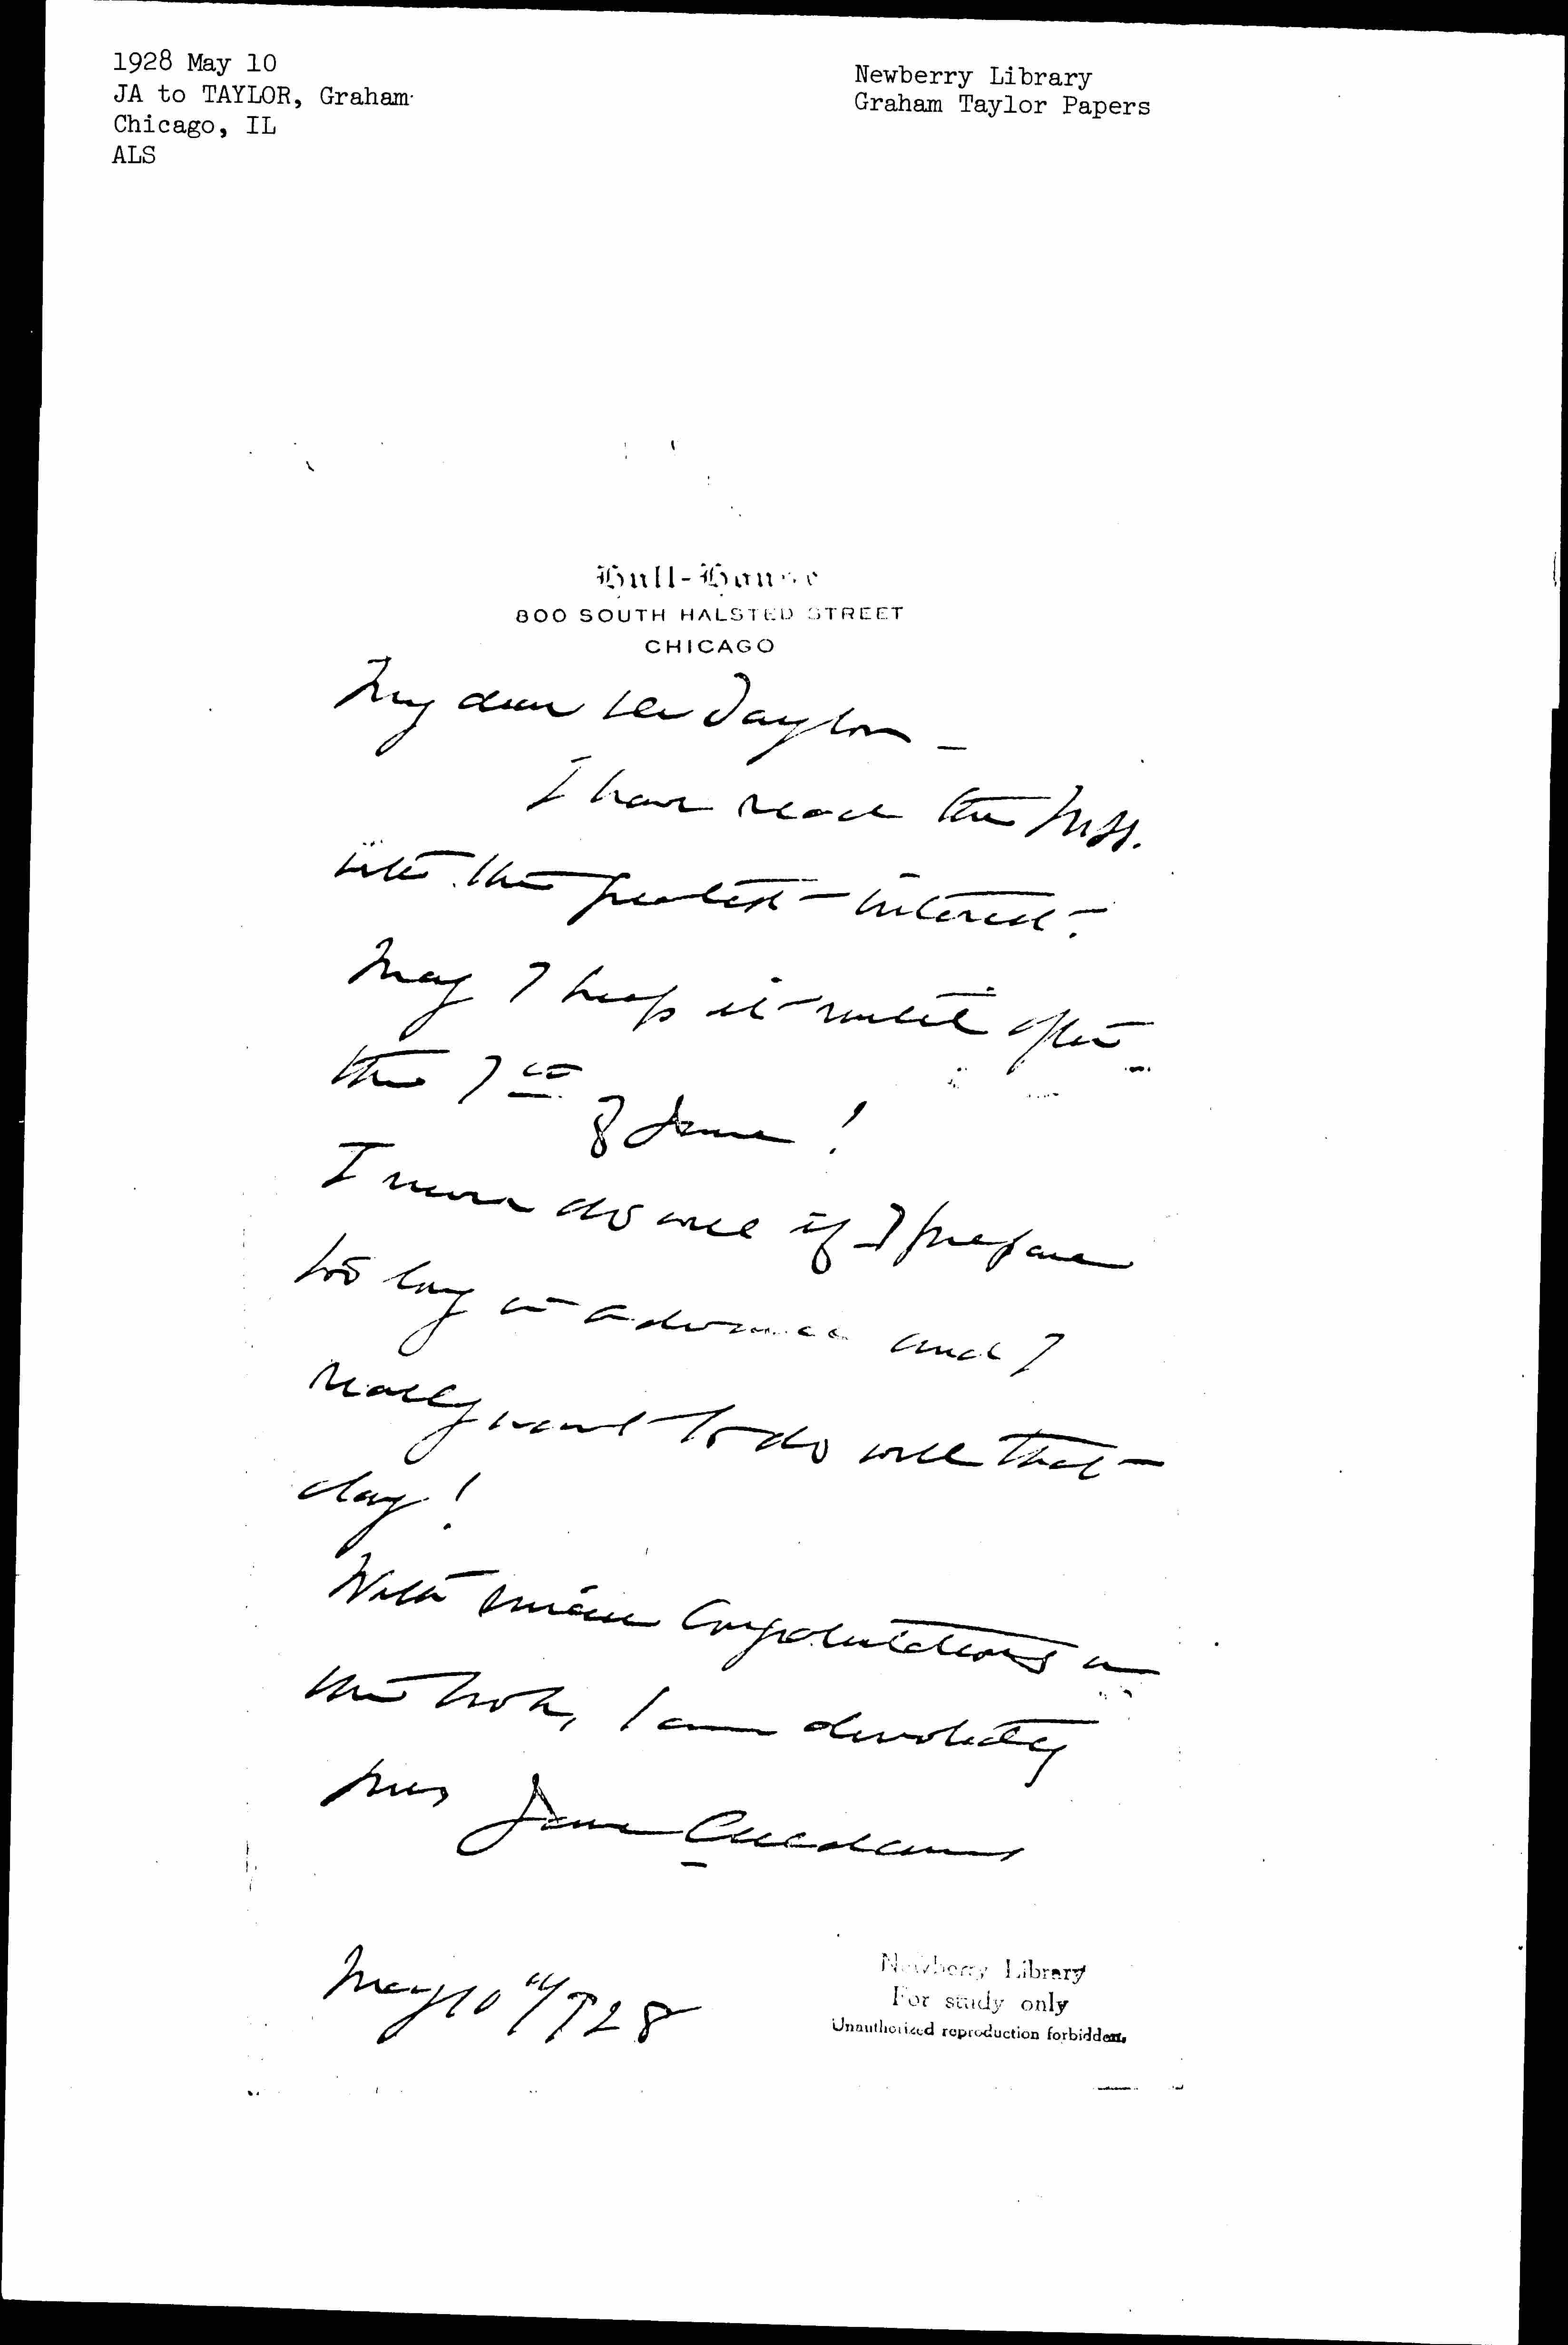 1928 May 10
JA to TAYLOR, Graham
Chicago, IL
ALS
Newberry Library
Graham Taylor Papers
Hull-House
800 SOUTH HALSTED STREET
CHICAGO
My dear Dr Taylor —
I have read the MSS.
with the greatest interest.
May I keep it until after
the 7th
of June!
I never do well if I prepare
too long in advance and I
really want to do well that
day!
With sincere Congratulations on
the book, I am devotedly
yrs Jane Addams
May 10"/928
Newberry Library
For study only
Unauthorized reproduction forbidden.